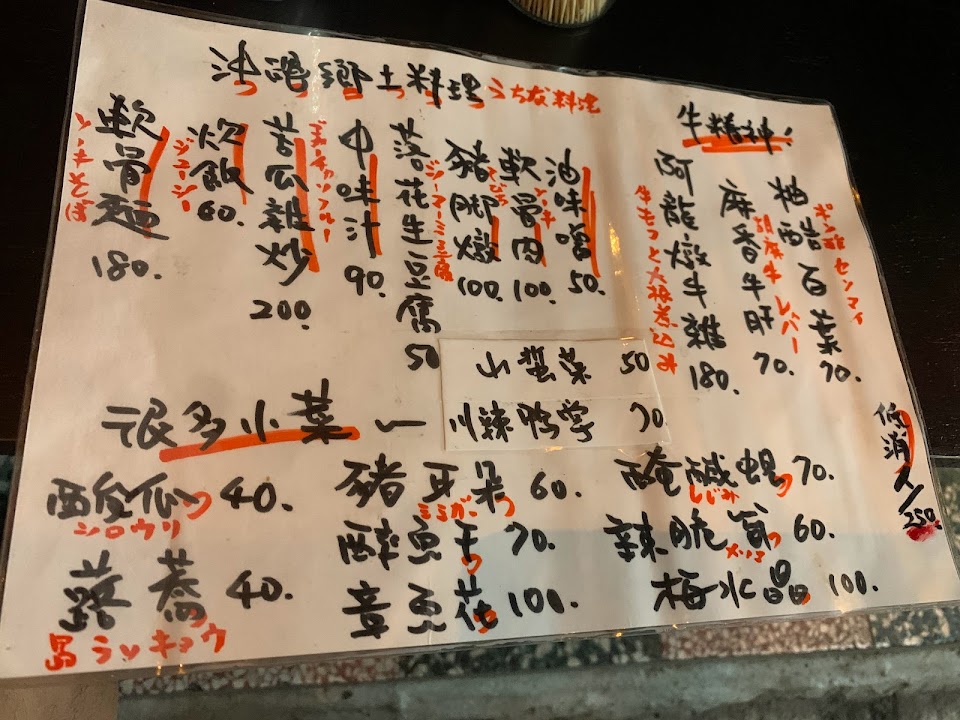 沖縄鄉土料理 うちな料理
軟骨麵 180.
ソーキそば
炊飯 60.
ジューシー
苦瓜雜炒 200.
ゴーヤーチャンプルー
中味汁 90.
落花生豆腐 50
ジーマーミ豆腐
豬腳燉 100.
てびち
軟骨肉 100.
ソーキ
油味噌 50.
牛精神!
阿龍燉牛雜 180.
牛モツと大根煮込み
麻香牛肝 70.
胡麻牛レバー
柚醋百葉 70.
ポン酢センマイ
山蜇菜 50
川辣鴨掌 70.
很多小菜～
醃瓜 40.
シロウリ
蕗蕎 40.
島ラッキョウ
豬耳朵 60.
ミミガー
酥魚干 70.
章魚花 100.
醃鹹蜆 70.
しじみ
辣脆筍 60.
メンマ
梅水晶 100.
低消 人/250.